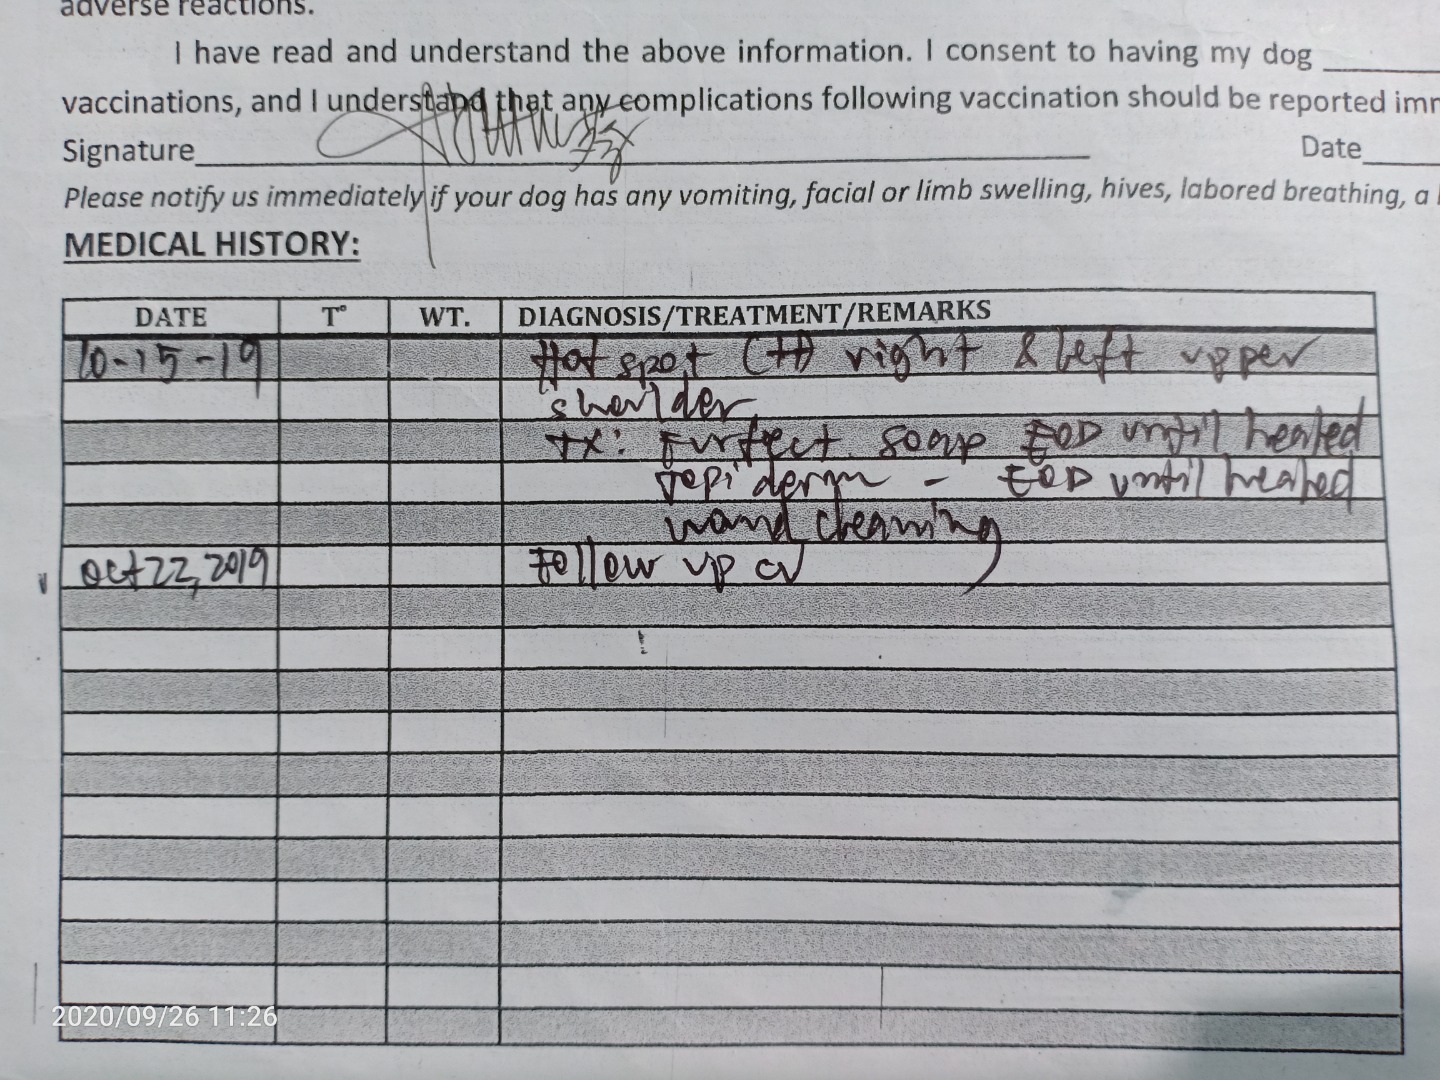 adverse reactions.
I have read and understand the above information. I consent to having my dog
vaccinations, and I understand that any complications following vaccination should be reported imm
Signature Date
Please notify us immediately if your dog has any vomiting, facial or limb swelling, hives, labored breathing, a
MEDICAL HISTORY:
DATE T° WT. DIAGNOSIS/TREATMENT/REMARKS
10-15-19 Hot spot (+) right & left upper
shoulder
tx: Furfect soap EOD until healed
Topiderm - EOD until healed
wound cleaning
Oct 22, 2019 Follow up
2020/09/26 11:26